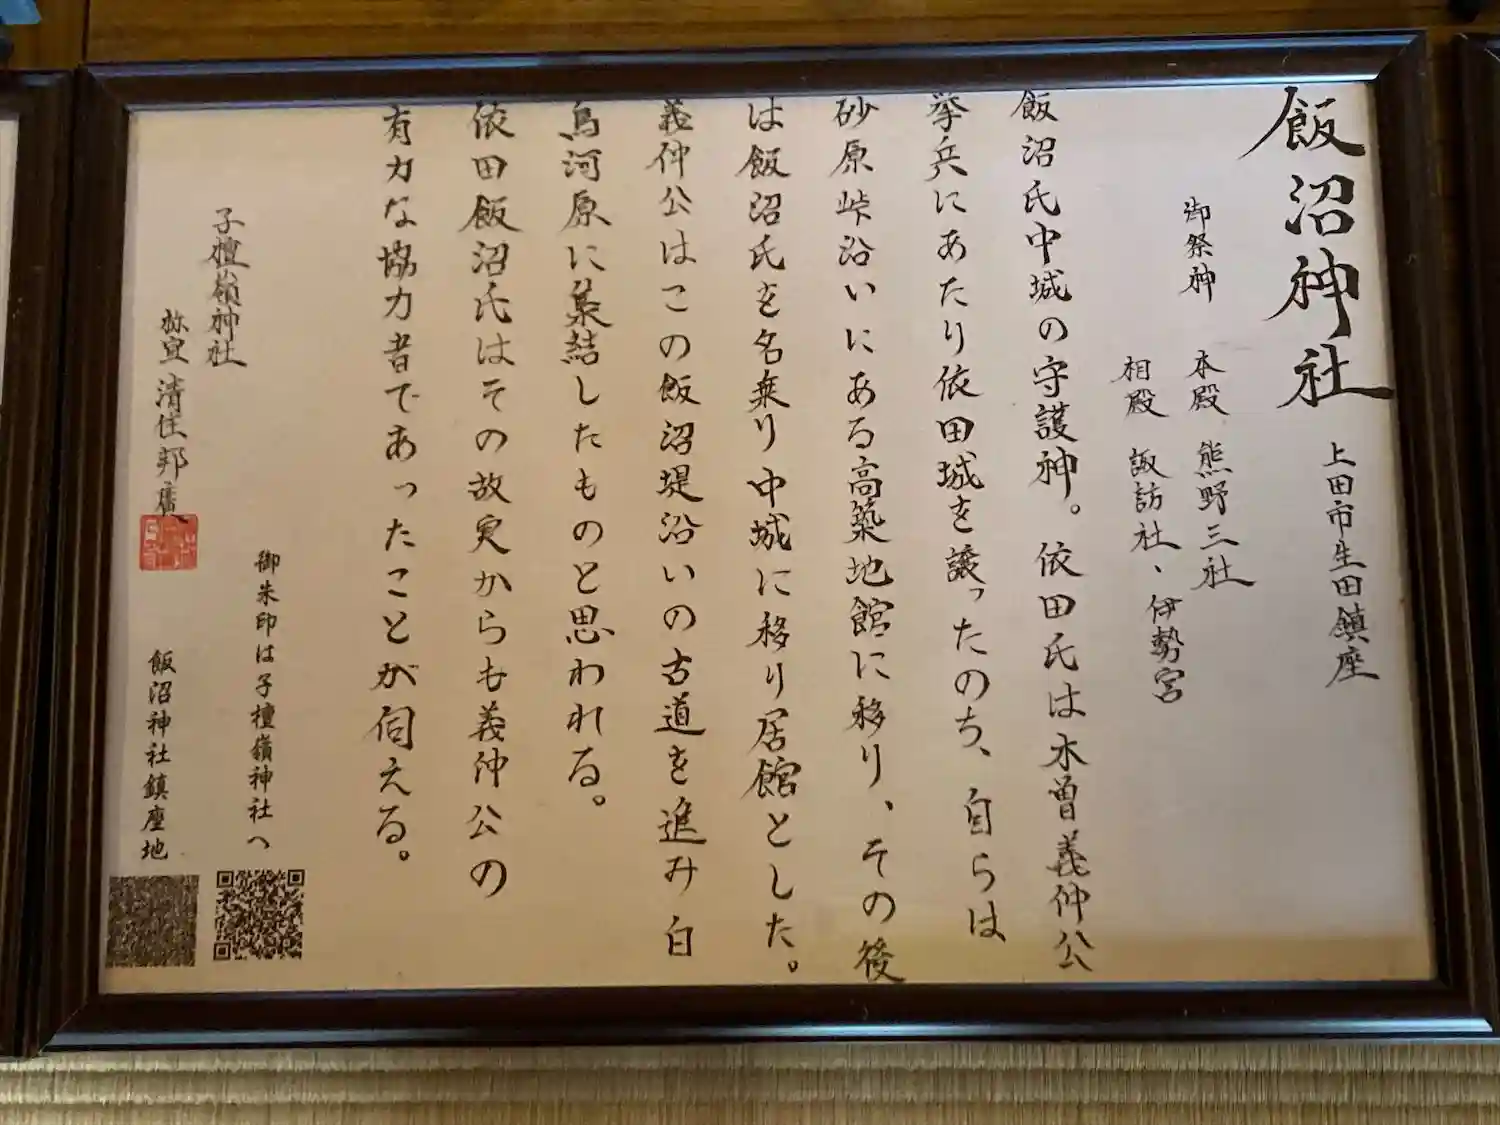 飯沼神社
上田市生田鎮座
御祭神
本殿 熊野三社
相殿 諏訪社、伊勢宮
飯沼氏中城の守護神。依田氏は木曽義仲公
挙兵にあたり依田城を譲ったのち、自らは
砂原峠沿いにある高築地館に移り、その後
は飯沼氏を名乗り中城に移り居館とした。
義仲公はこの飯沼堤沿いの古道を進み白
鳥河原に蒐結したものと思われる。
依田飯沼氏はその故実からも義仲公の
有力な協力者であったことが伺える。
御朱印は子檀嶺神社へ
子檀嶺神社
祢宜 清住邦廣
飯沼神社鎮座地